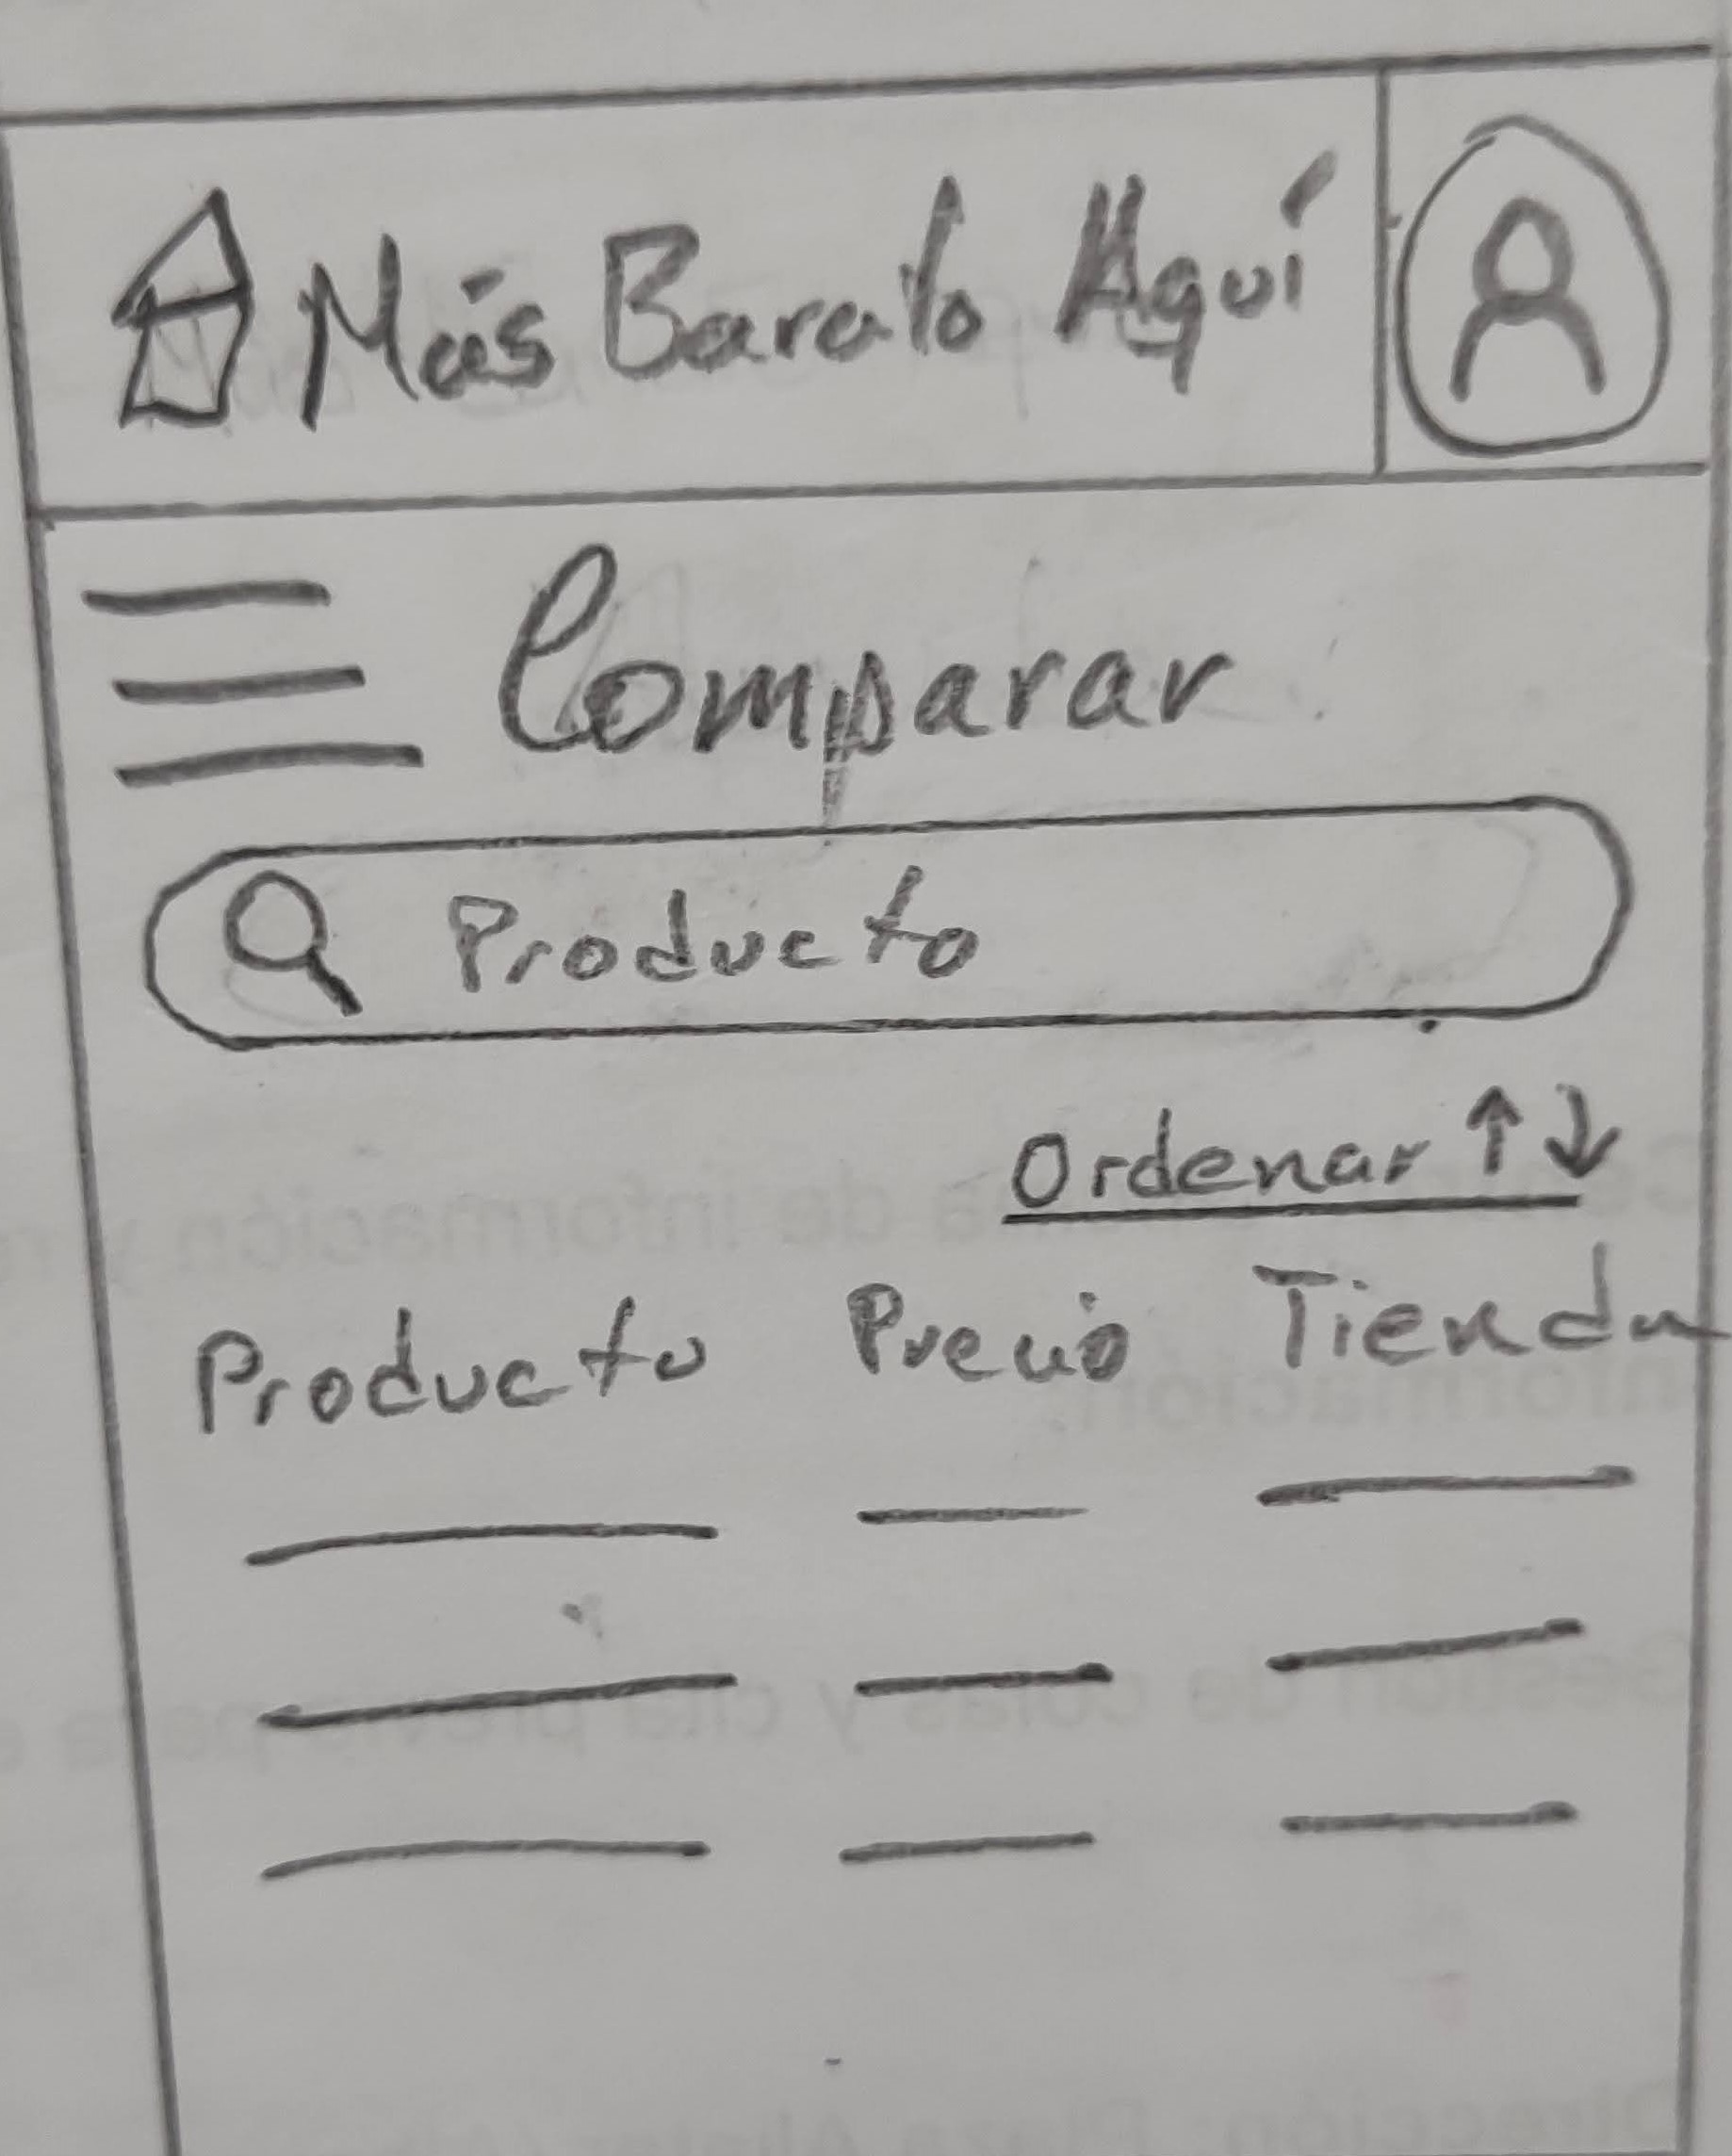 Más Barato Aquí
Comparar
Producto
Ordenar ↑↓
Producto Precio Tienda